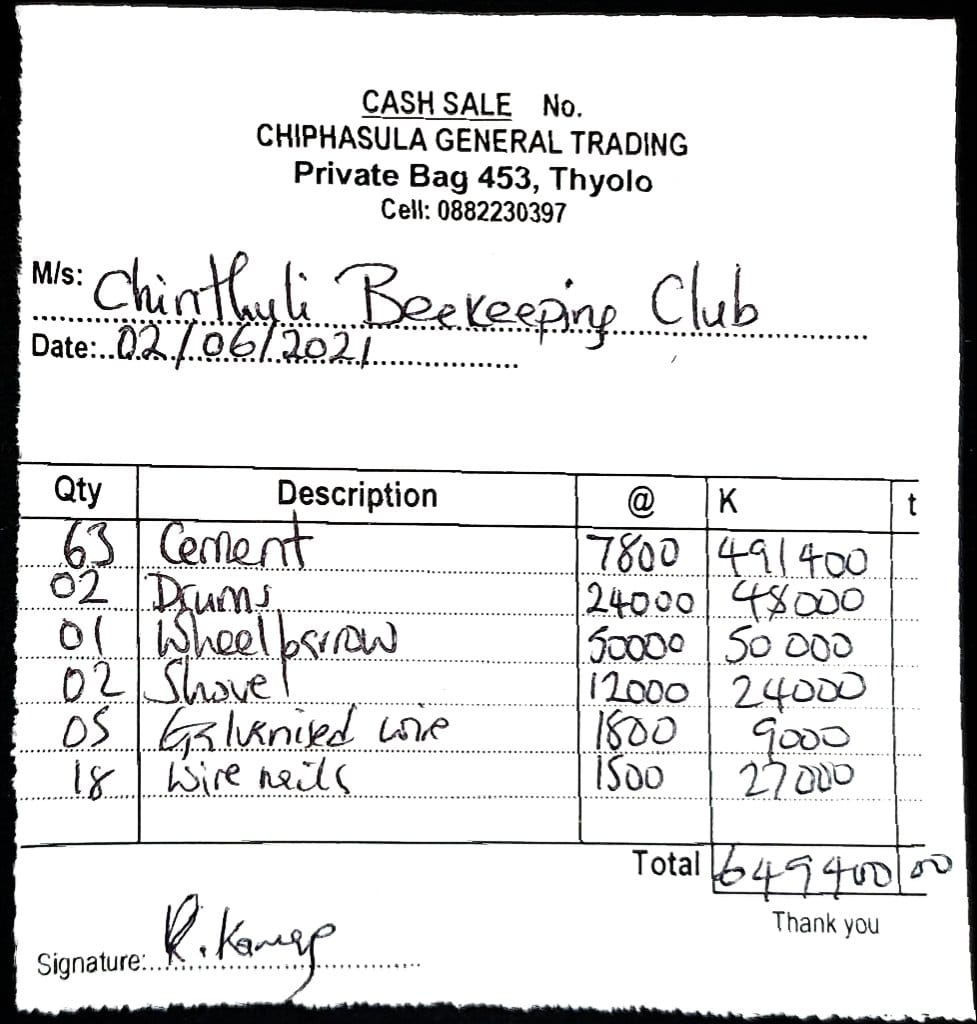 CASH SALE No.
CHIPHASULA GENERAL TRADING
Private Bag 453, Thyolo
Cell: 0882230397
M/s: Chinthuli Beekeeping Club
Date: 02/06/2021
Qty Description @ K t
63 Cement 7800 491400
02 Drums 24000 48000
01 Wheelbarrow 50000 50 000
02 Shovel 12000 24000
05 Galvanised wire 1800 9000
18 Wire nails 1500 27000
Total 649400 00
Thank you
Signature: R.